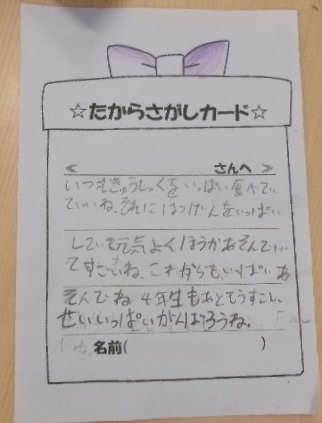 ☆たからさがしカード☆
≪ さんへ ≫
いつもきゅうしょくをいっぱい食べてい
ていいね。それにはつげんをいっぱい
しても元気よくほうかあそんで
てすごいね、これからもいっぱいあ
そんでね 4年生もあともうすこし、
せいいっぱいがんばろうね。
名前( )